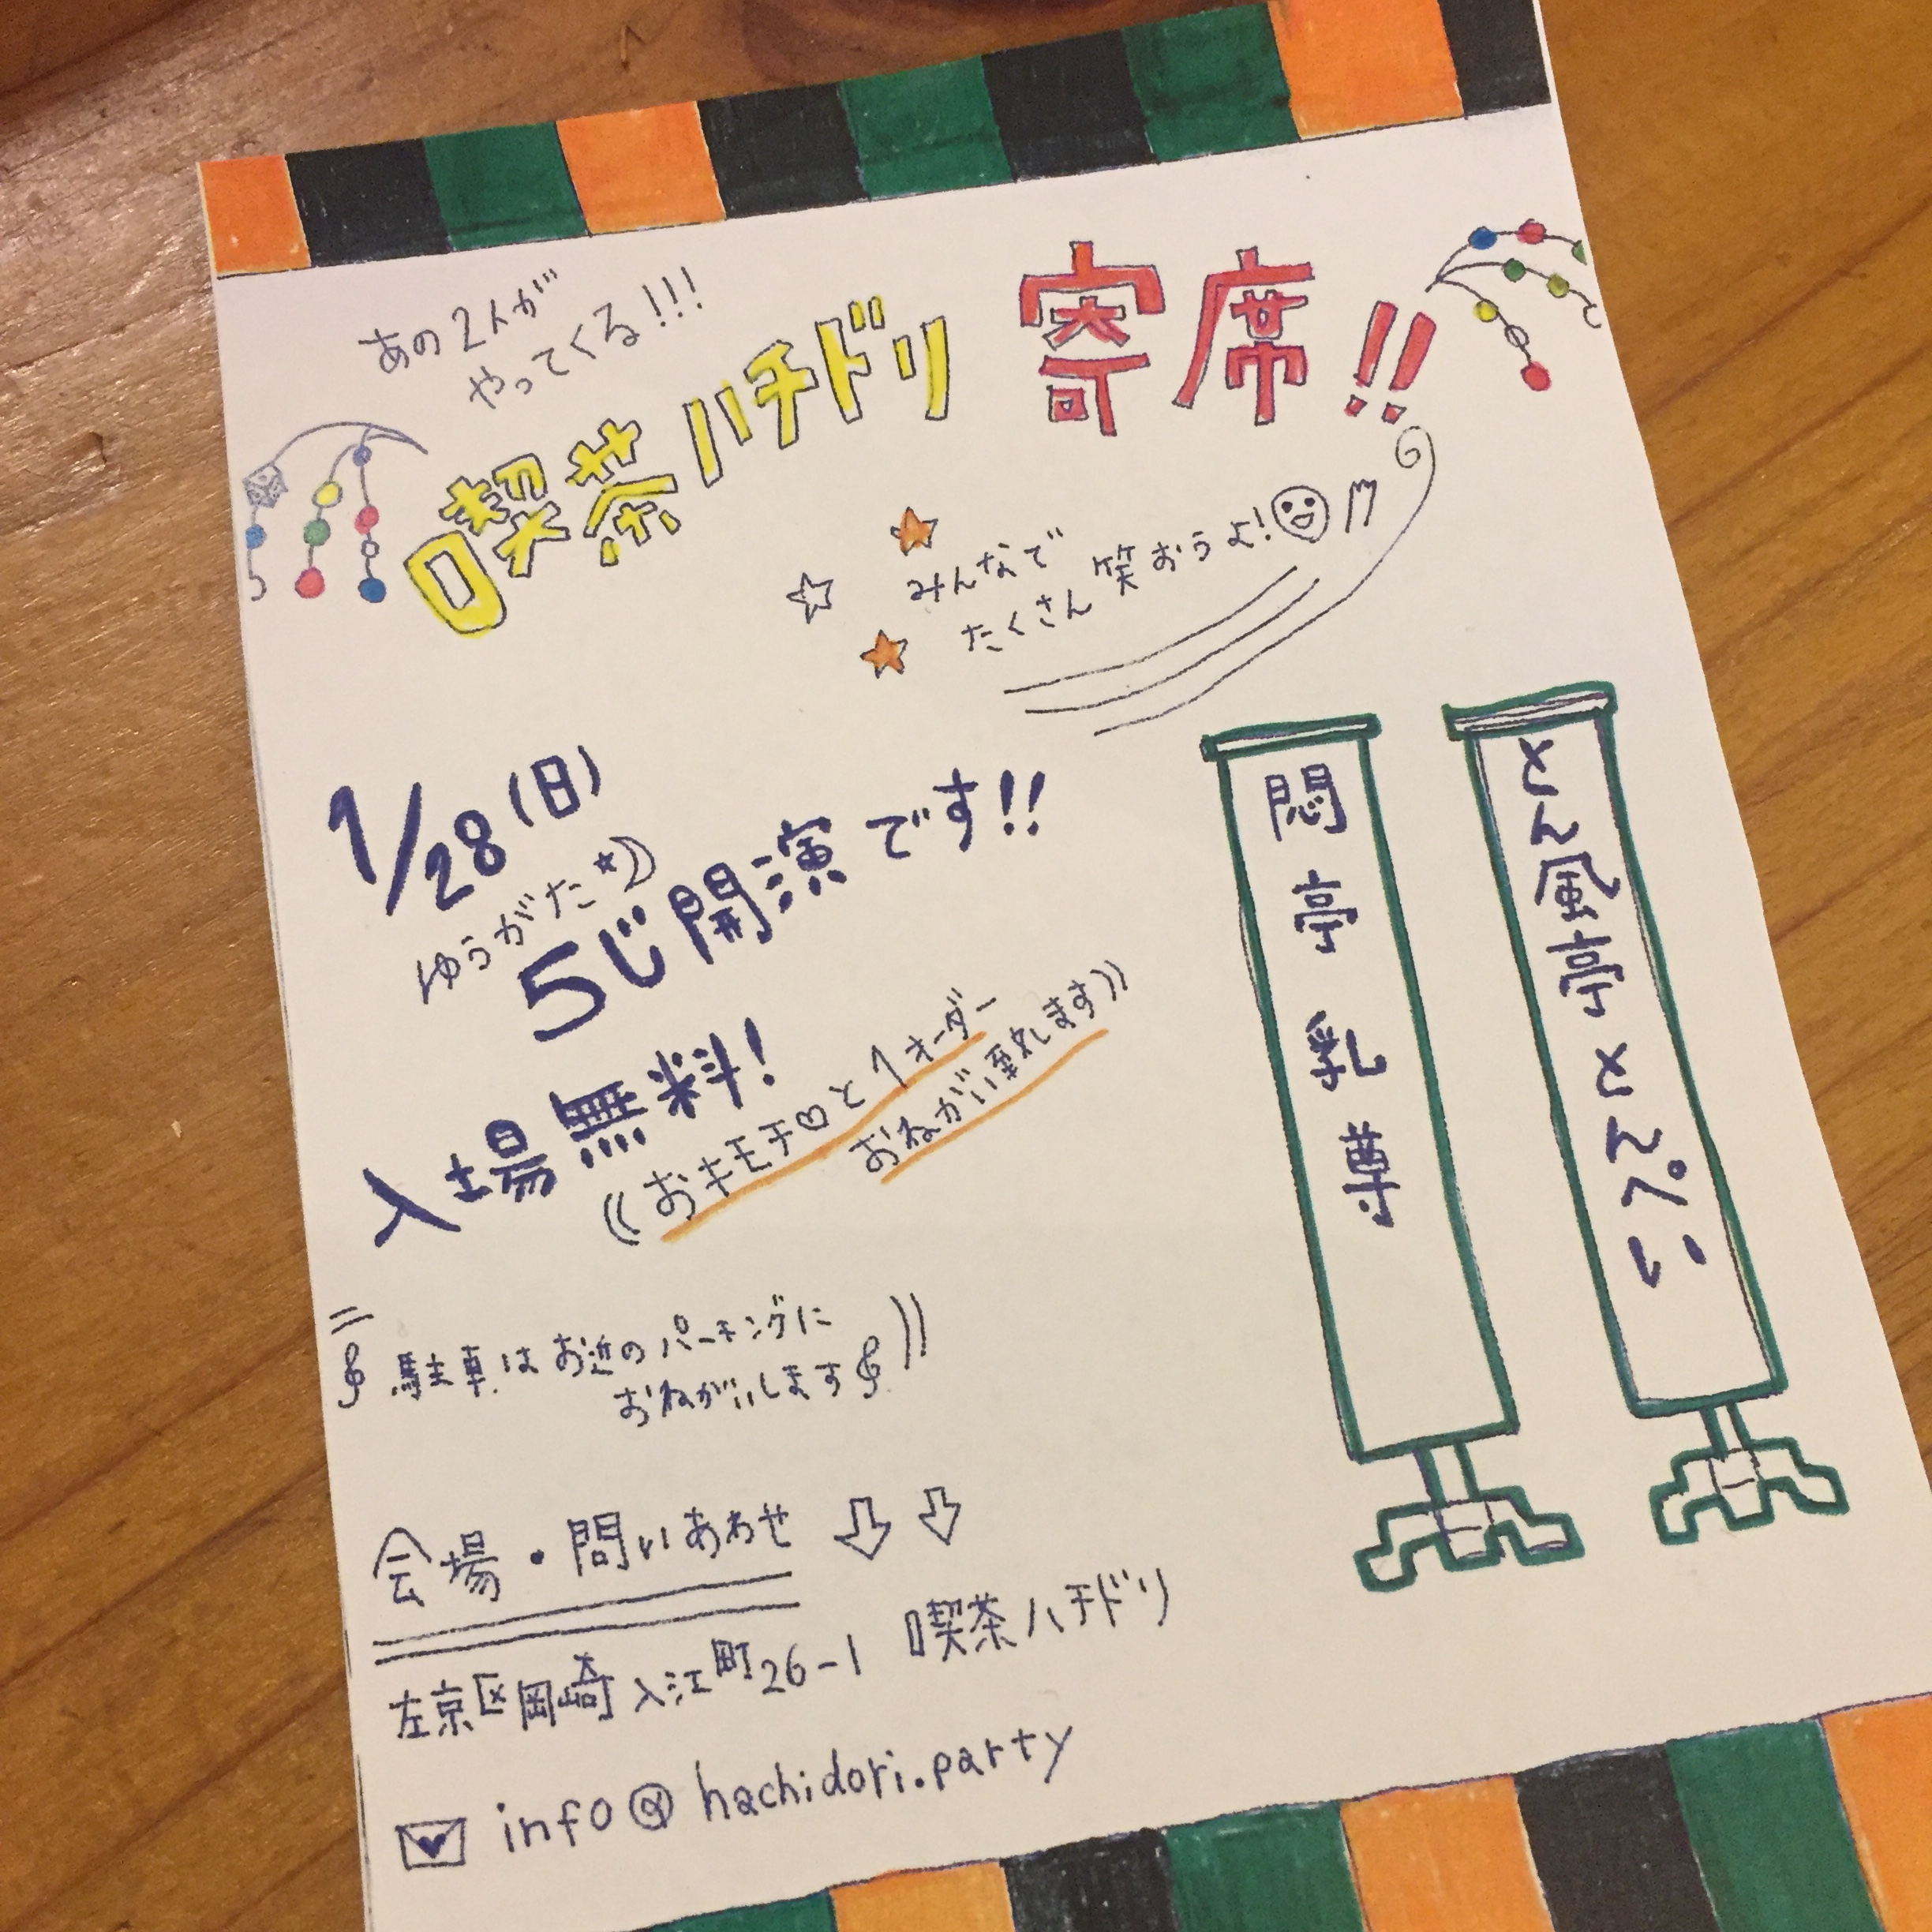 あの2人が
やってくる!!!
喫茶ハチドリ 寄席!!
みんなで
たくさん笑おうよ!
1/28(日)
ゆうがた
5じ開演です!!
入場無料!
((おキモチ♡と1オーダー
おねがい致します))
駐車はお近のパーキングに
おねがいします
とん風亭とんぺい
悶亭乳尊
会場・問いあわせ ⇩⇩
左京区岡崎入江町26-1 喫茶ハチドリ
info@hachidori.party